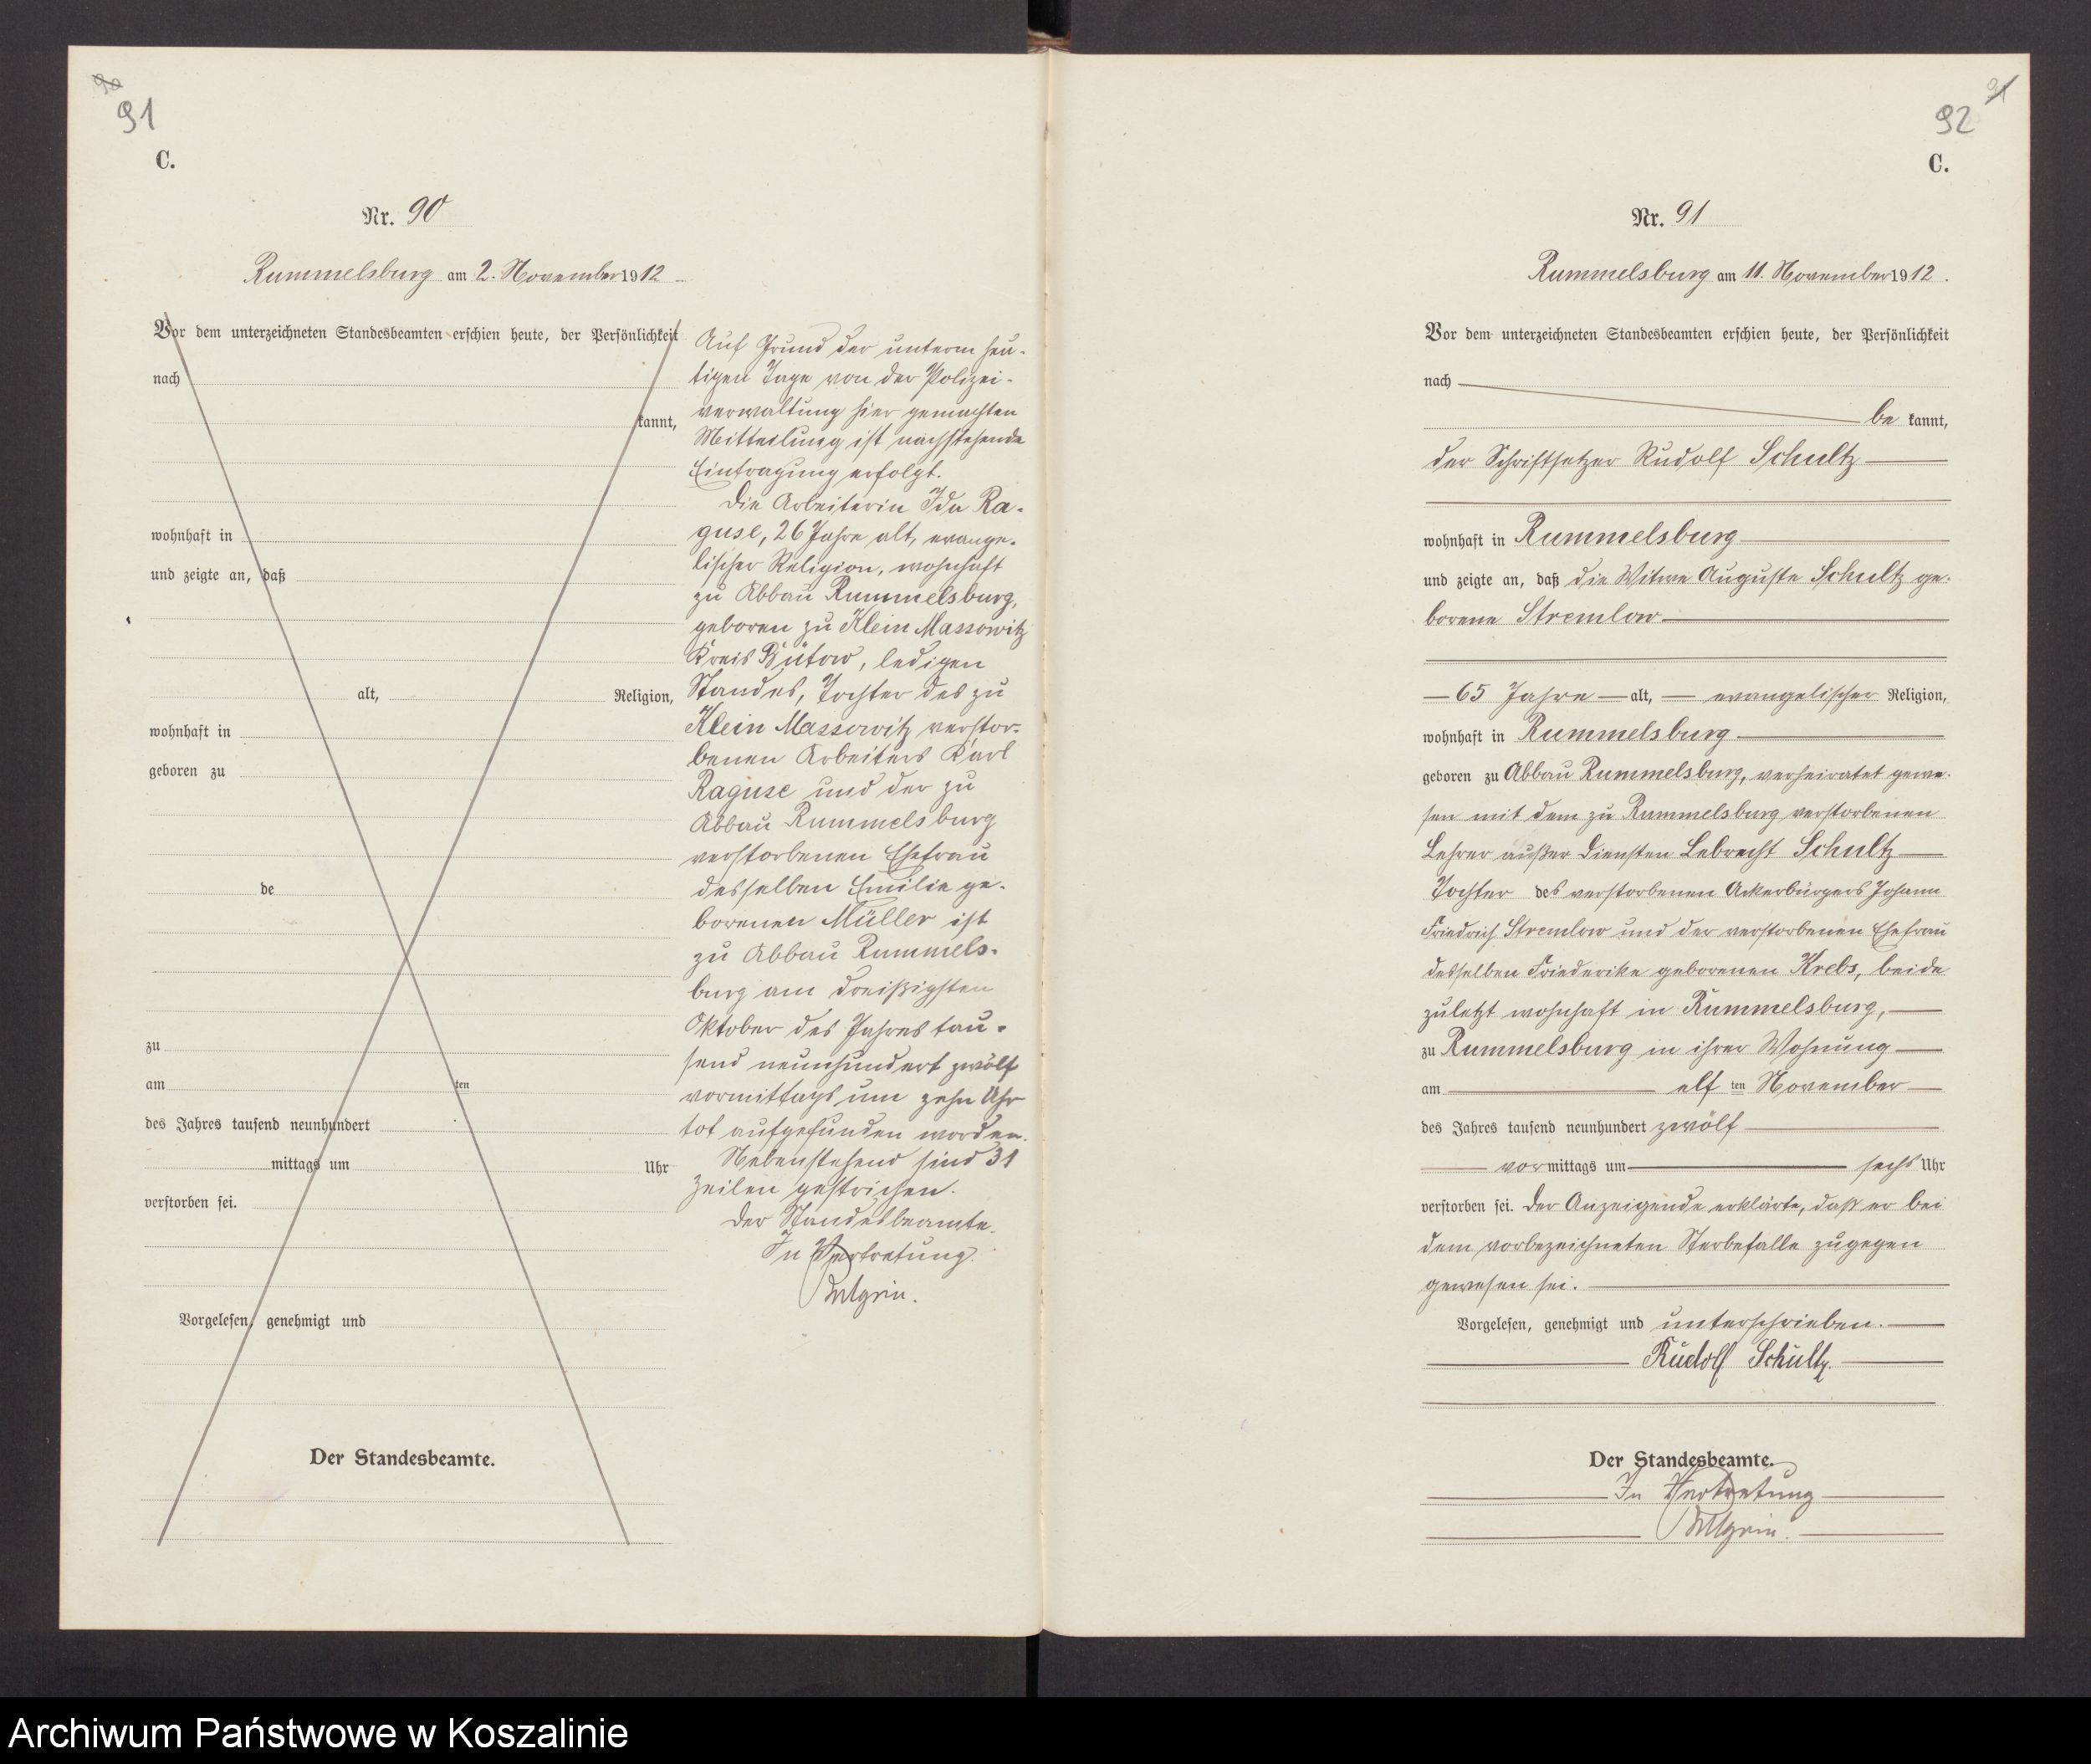 91
C.
Nr. 90
Rummelsburg am 2. November 1912
Vor dem unterzeichneten Standesbeamten erschien heute, der Persönlichkeit
nach
kannt,
wohnhaft in
und zeigte an, daß
alt, Religion,
wohnhaft in
geboren zu
de
zu
am ten
des Jahres tausend neunhundert
mittags um Uhr
verstorben sei.
Vorgelesen, genehmigt und
Der Standesbeamte.
Auf Grund der unterm heu-
tigen Tage von der Polizei-
verwaltung hier gemachten
Mitteilung ist nachstehende
Eintragung erfolgt.
Die Arbeiterin Ida Ra-
guse, 26 Jahre alt, evange-
lischer Religion, wohnhaft
zu Abbau Rummelsburg,
geboren zu Klein Massowitz
Kreis Bütow, ledigen
Standes, Tochter des zu
Klein Massowitz verstor-
benen Arbeiters Karl
Raguse und der zu
Abbau Rummelsburg
verstorbenen Ehefrau
desselben Emilie ge-
borenen Müller ist
zu Abbau Rummels-
burg am dreißigsten
Oktober des Jahres tau-
send neunhundert zwölf
vormittags um zehn Uhr
tot aufgefunden worden.
Nebenstehend sind 31
Zeilen gestrichen.
Der Standesbeamte.
In Vertretung.
92
91
C.
Nr. 91
Rummelsburg am 11. November 1912.
Vor dem unterzeichneten Standesbeamten erschien heute, der Persönlichkeit
nach
be kannt,
der Schriftsetzer Rudolf Schultz
wohnhaft in Rummelsburg
und zeigte an, daß die Witwe Auguste Schultz ge-
borene Stremlow
65 Jahre alt, evangelischer Religion,
wohnhaft in Rummelsburg
geboren zu Abbau Rummelsburg, verheiratet gewe-
sen mit dem zu Rummelsburg verstorbenen
Lehrer außer Diensten Lebrecht Schultz
Tochter des verstorbenen Ackerbürgers Johann
Friedrich Stremlow und der verstorbenen Ehefrau
desselben Friederike geborenen Krebs, beide
zuletzt wohnhaft in Rummelsburg,
zu Rummelsburg in ihrer Wohnung
am elf ten November
des Jahres tausend neunhundert zwölf
vormittags um sechs Uhr
verstorben sei. Der Anzeigende erklärte, daß er bei
dem vorbezeichneten Sterbefalle zugegen
gewesen sei.
Vorgelesen, genehmigt und unterschrieben.
Rudolf Schultz.
Der Standesbeamte.
In Vertretung
Archiwum Państwowe w Koszalinie